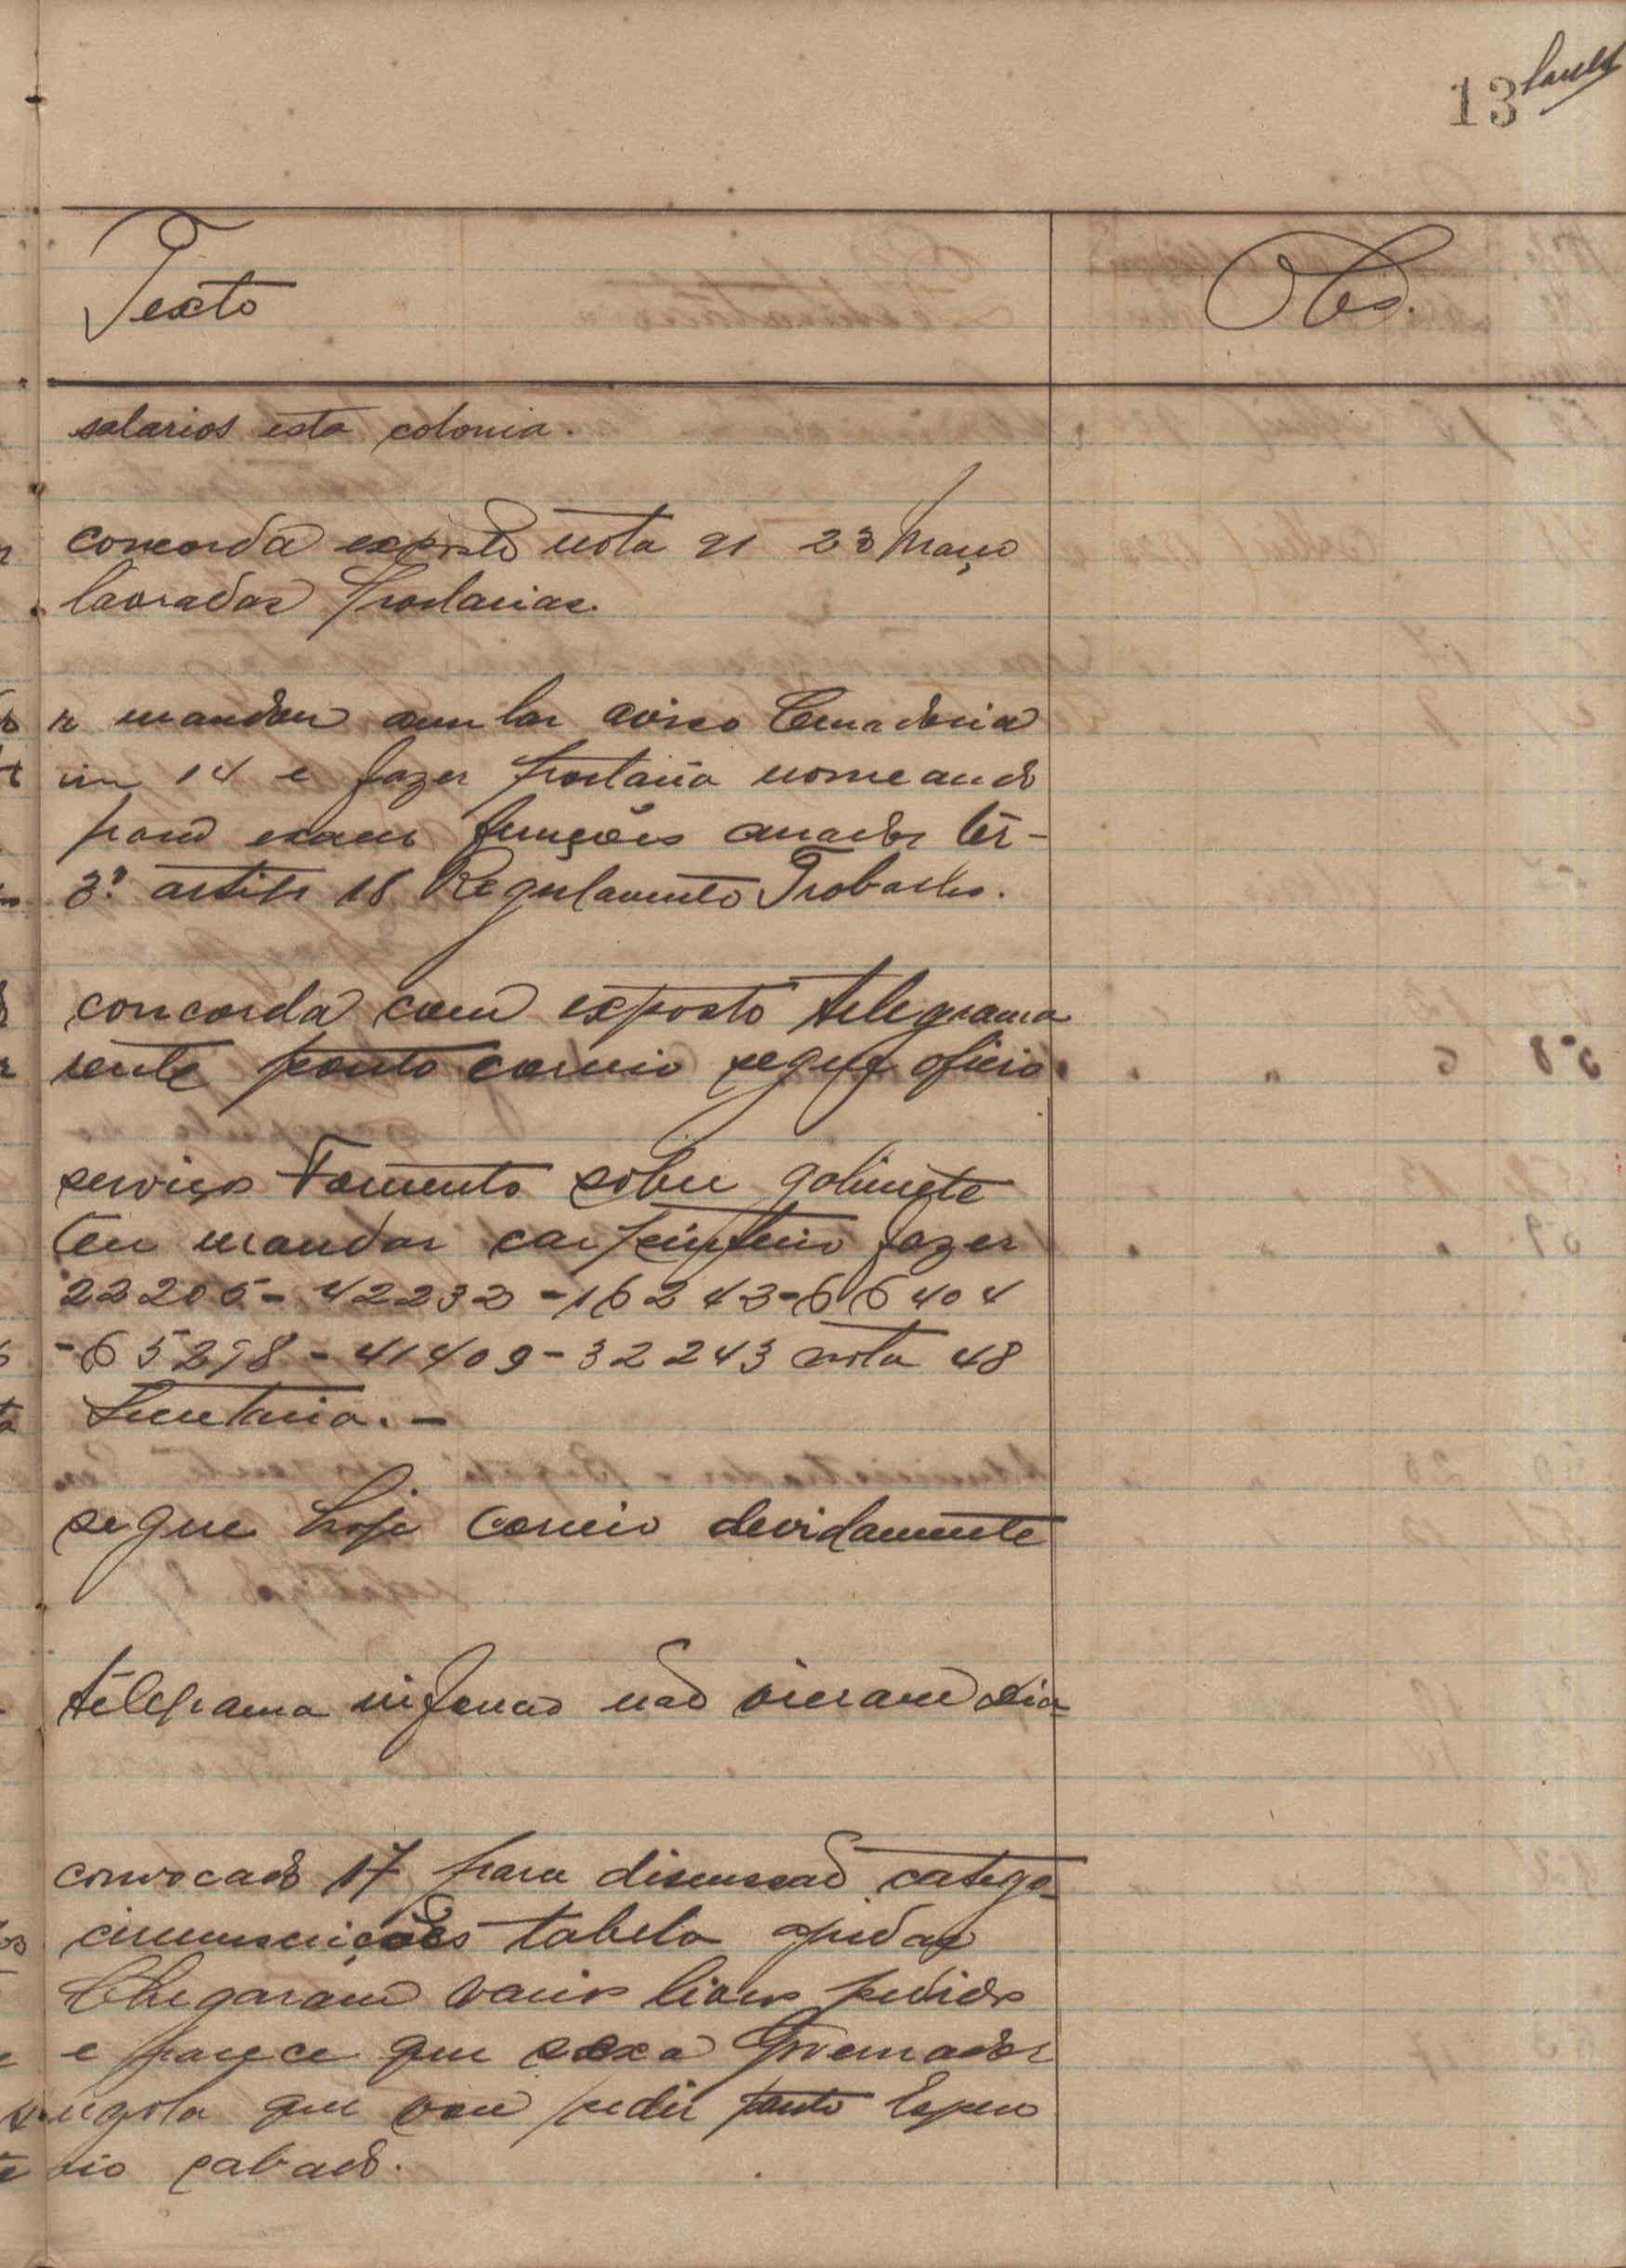 13
Texto
Obs.
salarios esta colonia.
concorda exposto nota 91 23 Março
lavradas portarias.
mandar anular aviso
14 e fazer portaria nomeando
funções curador
3º. artigo 18 Regulamento Trabalho.
concorda com exposto telegrama
rente ponto correio segue oficio
serviços Fomento sobre gabinete
mandar carpinteiro fazer
22205 - 42232 - 16243 - 66404
- 65298 - 41409 - 32243 nota 48
segue hoje correio devidamente
telegrama não vieram
convocado 17 para discussão catego-
circunscrições tabela
Chegaram varios livros pedidos
e parece que sexa Governador
ngola que vou pedir ponto Espero
rio sabado.